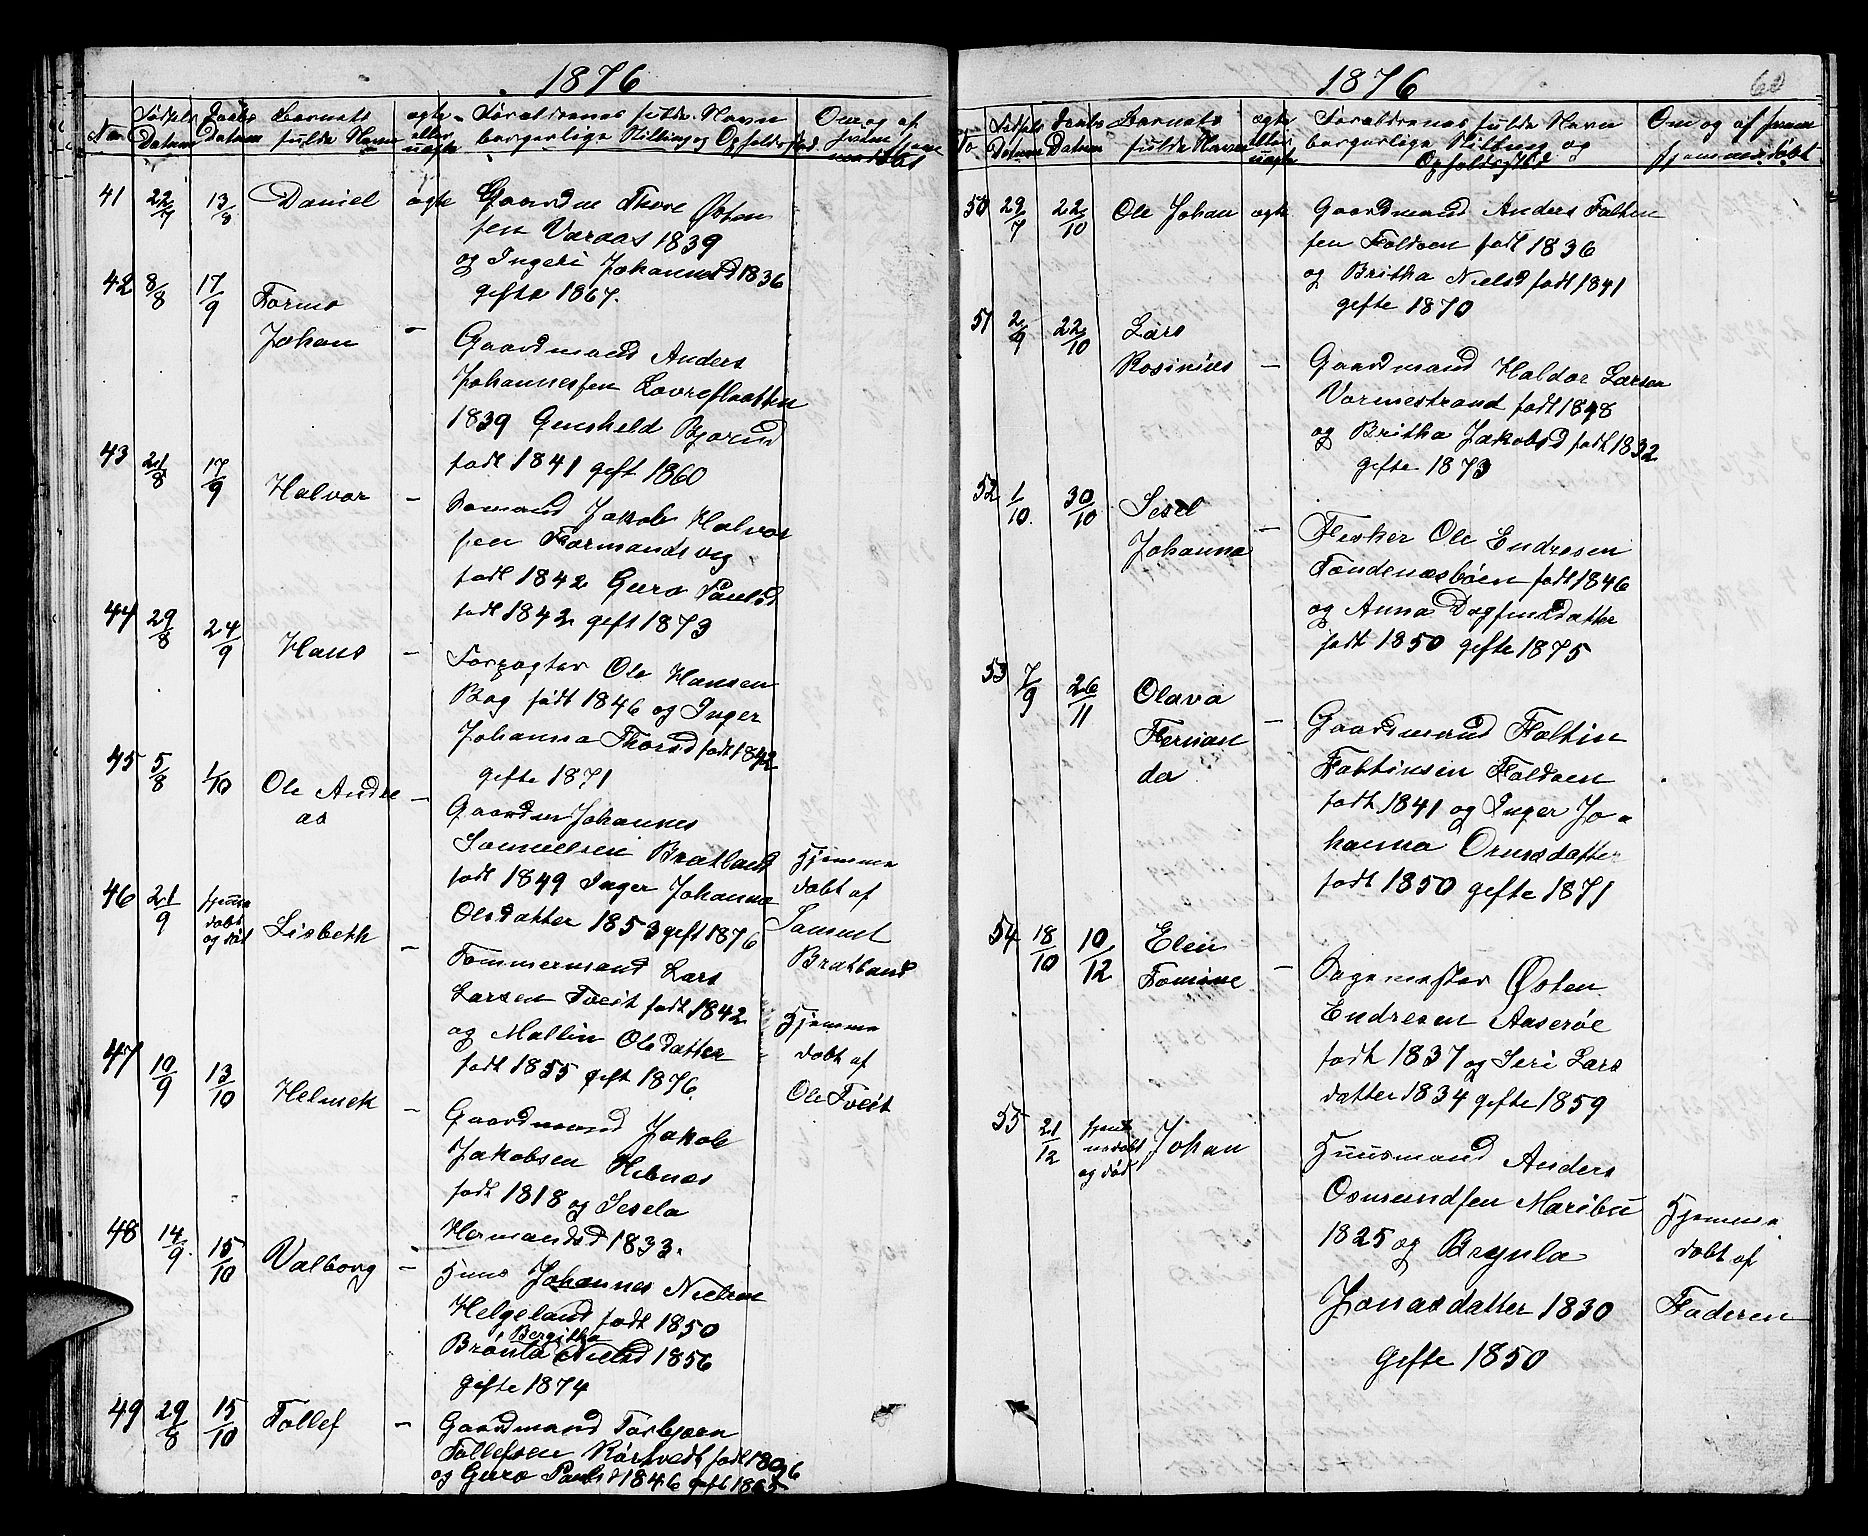 1876
No Fødsels Datum Daabs Datum Barnets fulde Navn ægte eller uægte Forældrenes fulde Navn borgerlige Stilling og Opholdssted Om og af hvem hjemmedøbt
41 22/7 13/8 Daniel ægte Gaardm Thore Østen
sen Varaas 1839
og Ingeri Johannesd 1836
gifte 1867.
42 8/8 17/9 Tormo
Johan - Gaardmand Anders
Johannessen Lovreslaatten
1839 Gunheld Bjornsd
født 1841 gift 1860
43 21/8 17/9 Halvor - Bomand Jakob Halvor
sen Formandsvig
født 1842 Guro Paulsd
født 1842 gift 1873
44 29/8 24/9 Hans - Forpagter Ole Hansen
Bog født 1846 og Inger
Johanna Thorsd født 1842
gifte 1871
45 5/8 1/10 Ole Andre
as - Gaardm Johannes
Samuelsen Bratland
født 1849 Inger Johanna
Olsdatter 1853 gift 1876
Hjemme
døbt af
Samuel
Bratland
46 21/9 hjemme
døbt
og død Lisbeth - Tømmermand Lars
Larsen Tveit født 1842
og Mallin Olsdatter
født 1855 gift 1876
Hjemme
døbt af
Ole Tveit
47 10/9 13/10 Helmek - Gaardmand Jakob
Jakobsen Hebnæs
født 1818 og Sesela
Hermandsd 1833.
48 14/9 15/10 Valborg - Huus Johannes Nielsen
Helgeland født 1850
Bergitha
Brønla Nielsd 1856
gifte 1874
49 29/8 15/10 Tollef - Gaardmand Torbjørn
Tollefsen Rørtvedt født 1836
og Guro Paulsd 1846 gift 1865
1876
60
No Fødsels Datum Daabs Datum Barnets fulde Navn ægte eller uægte Forældrenes fulde Navn borgerlige Stilling og Opholdssted Om og af hvem hjemmedøbt
50 29/7 22/10 Ole Johan ægte Gaardmand Anders Falten
sen Foldøen født 1836
og Britha Nielsd født 1841
gifte 1870
51 2/9 22/10 Lars
Rosinius - Gaardmand Haldor Larsen
Vormestrand født 1848
og Britha Jakobsd født 1832
gifte 1873
52 1/10 30/10 Sesel
Johanna - Fisker Ole Endresen
Tændenæsbøen født 1846
og Anna Dagfinsdatter
født 1850 gifte 1875
53 7/9 26/11 Olava
Fernan
da - Gaardmand Faltin
Faltinsen Foldøen
født 1841 og Inger Jo-
hanna Ormsdatter
født 1850 gifte 1871
54 18/10 10/12 Elen
Tomine - Sagemester Østen
Endresen Aaserøe
født 1837 og Siri Lars
datter 1834 gifte 1859
55 21/12 hjem
medøbt
og død Johan Huusmand Anders
Osmundsen Maribu
1825 og Brynla
Jonasdatter 1830
Gifte 1850
Hjemme
døbt af
Faderen